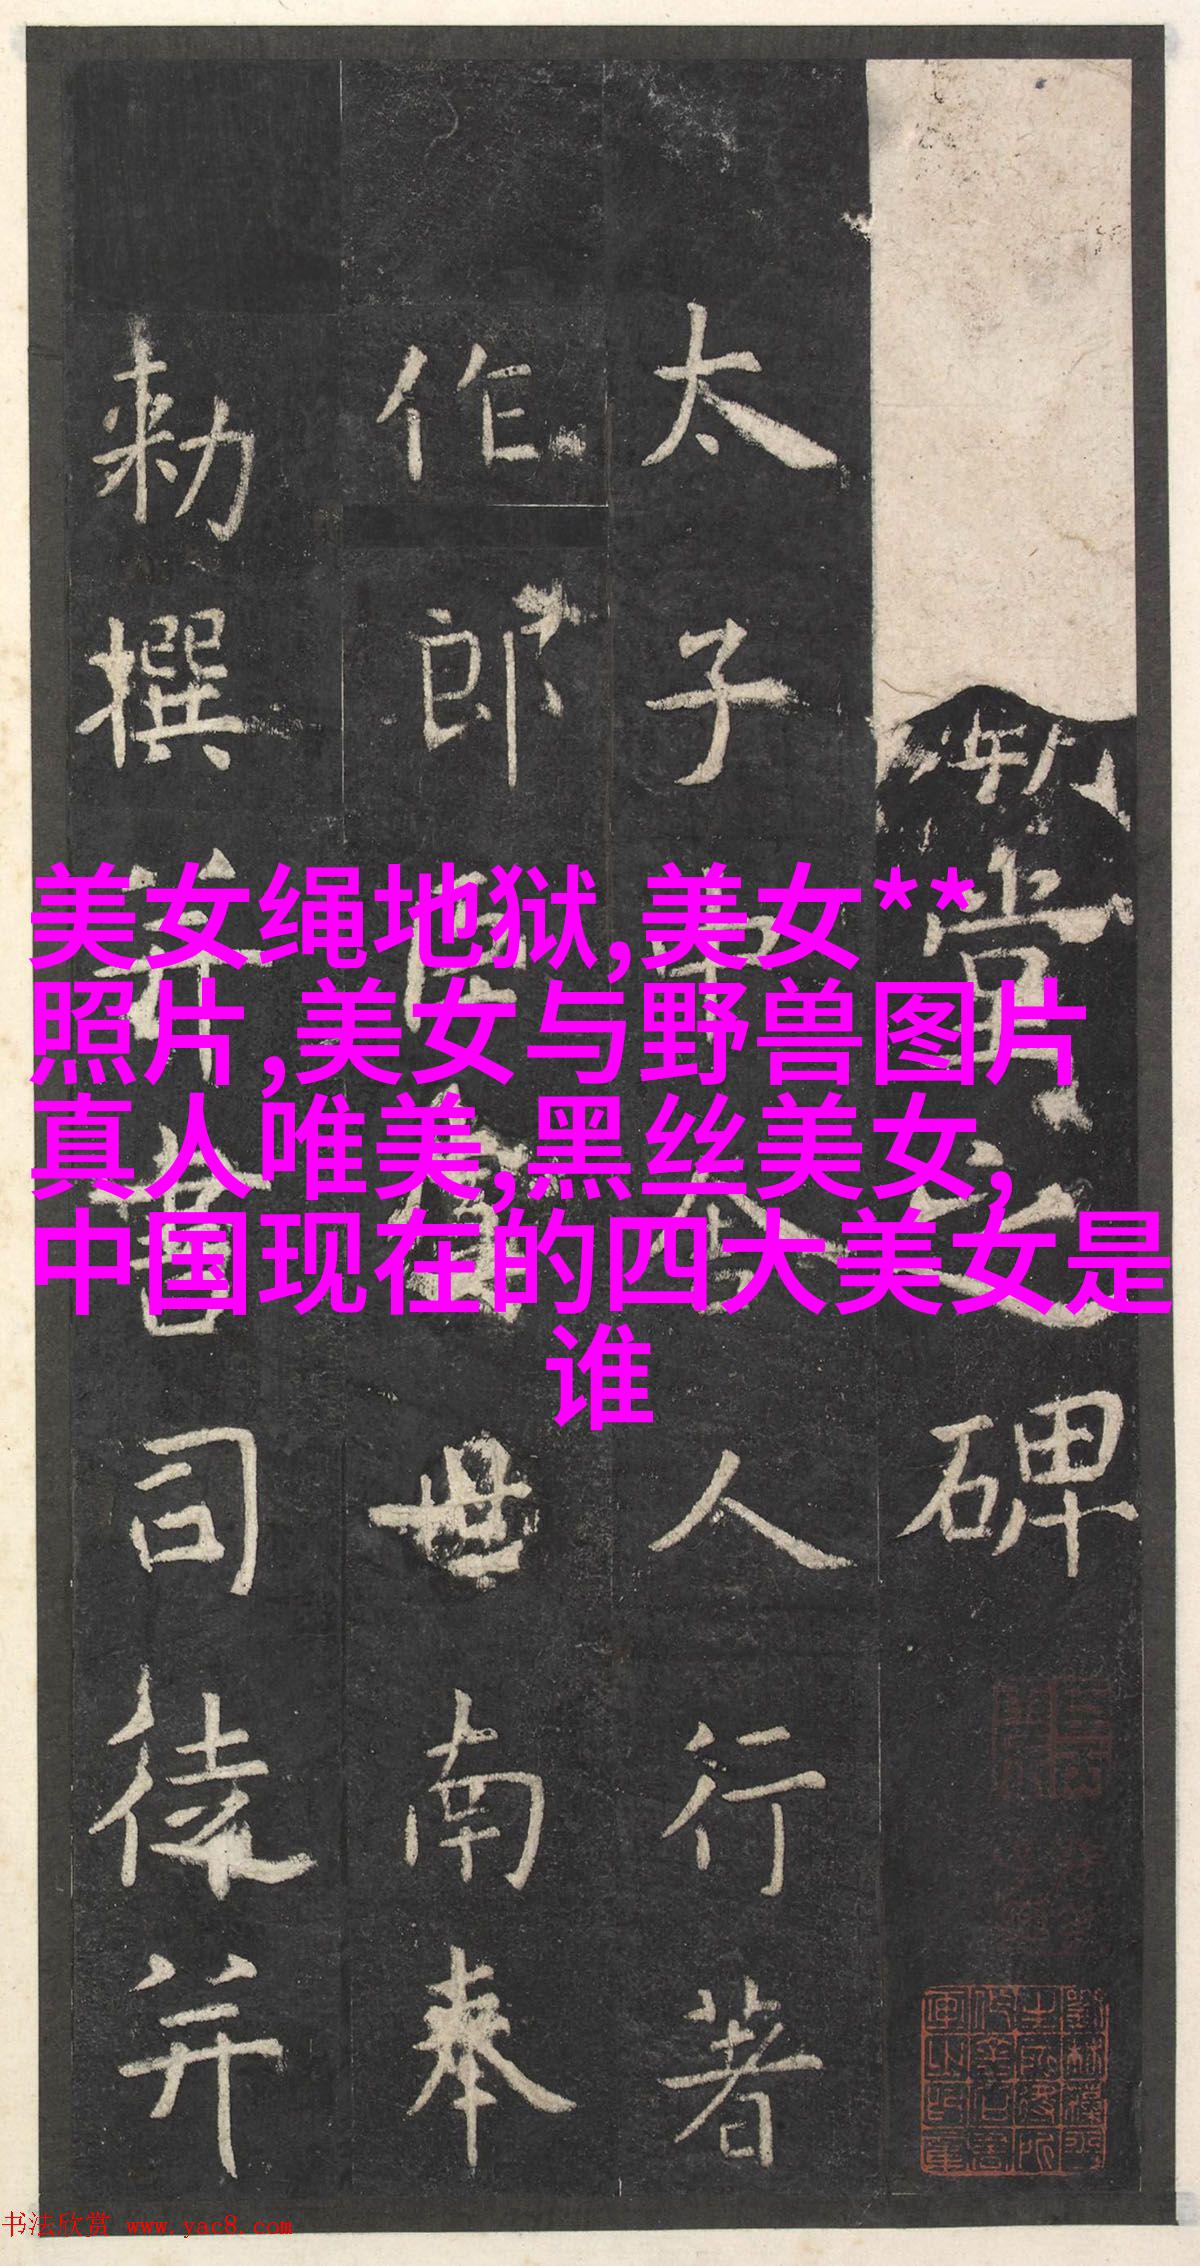 美女绳地狱,美女**
照片,美女与野兽图片
真人唯美,黑丝美女,
中国现在的四大美女是
谁
堂之碑
太子中舍人行著
作郎臣虞世南奉
勅撰并書司徒并
书法欣赏 www.yac8.com